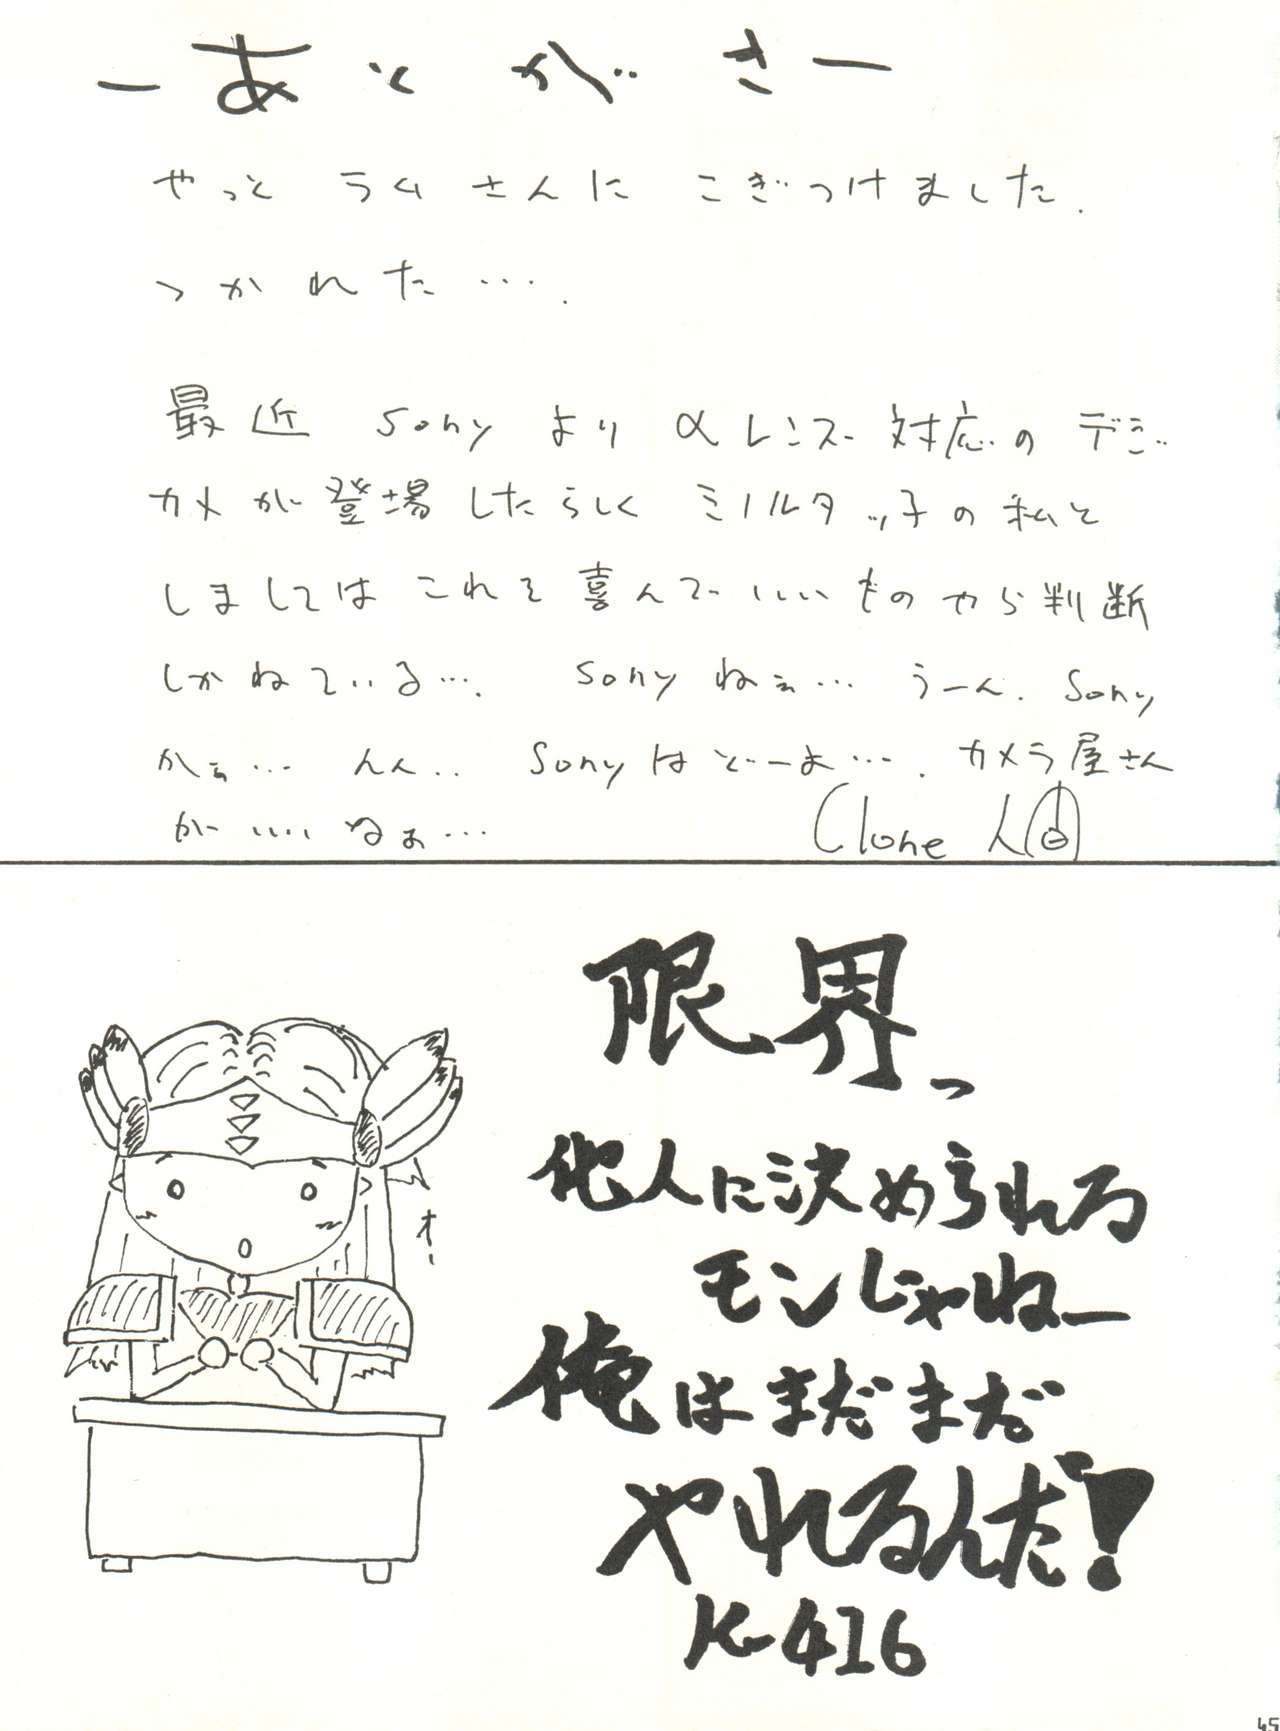 ーあとがきー
やっと ラムさんに こぎつけました.
つかれた….
最近 Sony より αレンズ対応のデジ
カメが登場したらしく ミノルタッ子の私と
しましては これを喜んでいいものやら判断
しかねている…. Sonyねぇ… うーん. Sony
かぁ… んん.. Sonyはどーも…. カメラ屋さん
が いいねぇ…
Clone 人間
限界っ
他人に決められる
モンじゃねー
俺はまだまだ
やれるんだ!
K-416
オー
45